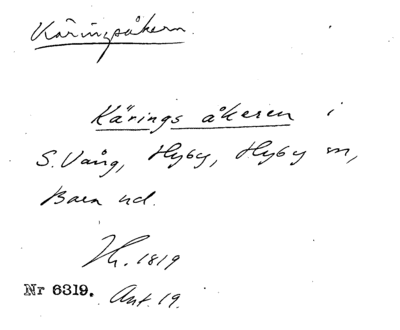 Käringsåkern.
Kärings åkeren i
S. Vång, Hyby, Hyby sn,
Bara hd.
1819
Nr 6319. Ant. 19.